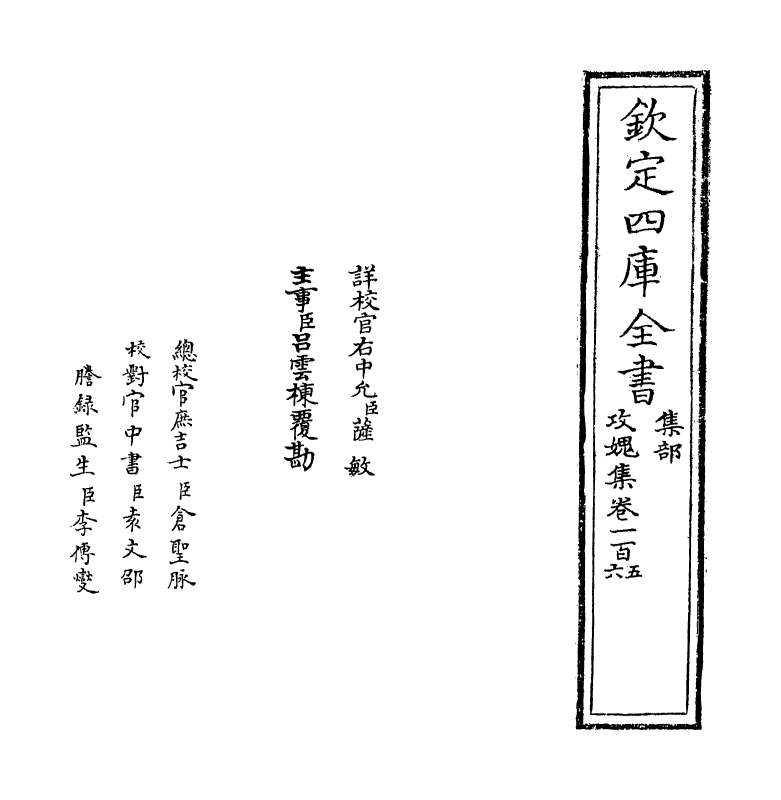 欽定四庫全書
集部
攻媿集卷一百五六
詳校官右中允臣薩敏
主事臣呂雲棟覆勘
總校官庶吉士臣倉聖脉
校對官中書臣袁文邵
謄録監生臣李傳燮